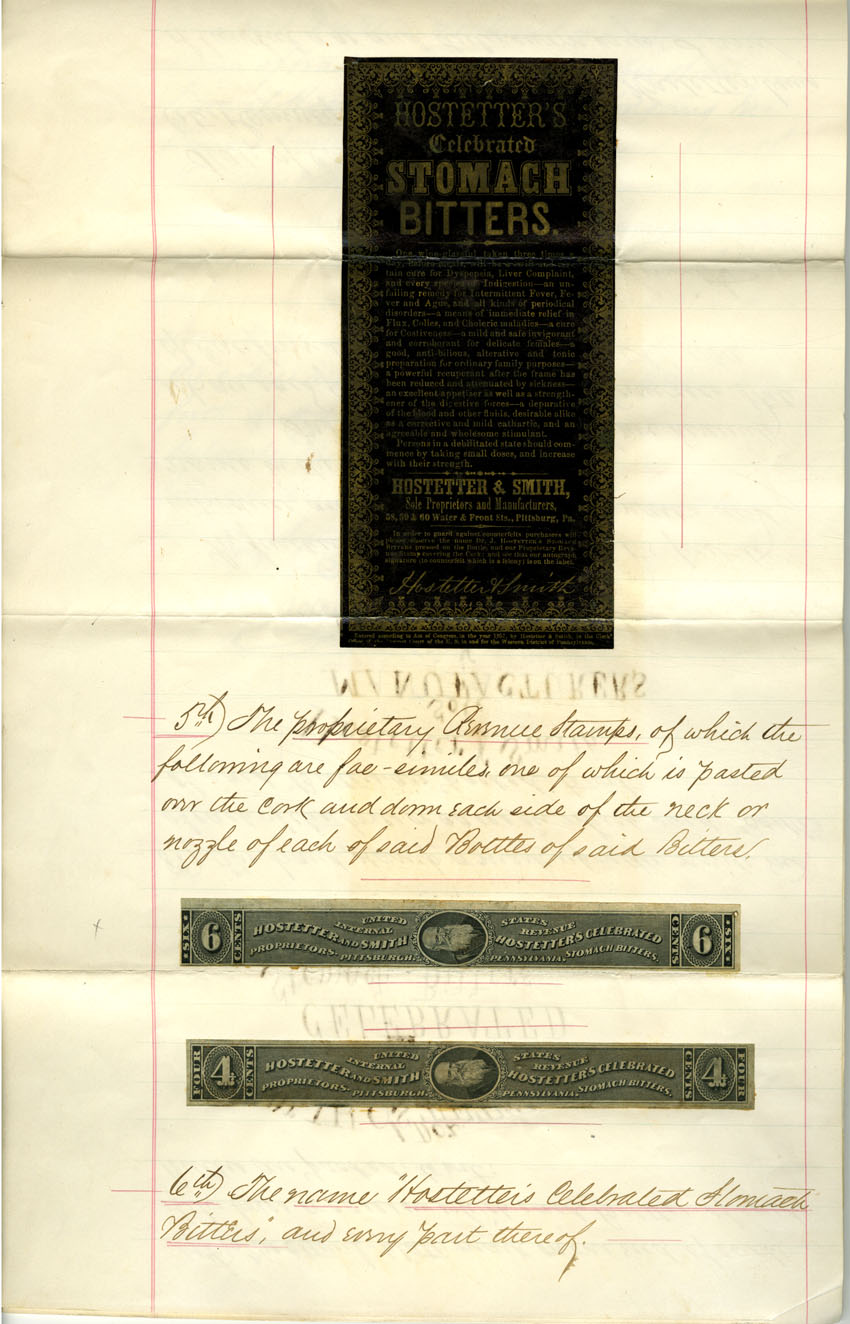 HOSTETTER'S
Celebrated
STOMACH
BITTERS.
One wine-glassful taken three times a
day, before meals, will be a swift and cer-
tain cure for Dyspepsia, Liver Complaint,
and every species of Indigestion—an un-
failing remedy for Intermittent Fever, Fe-
ver and Ague, and all kinds of periodical
disorders—a means of immediate relief in
Flux, Colics, and Choleric maladies—a cure
for Costiveness—a mild and safe invigorant
and corroborant for delicate females—a
good, anti-bilious, alterative and tonic
preparation for ordinary family purposes—
a powerful recuperant after the frame has
been reduced and attenuated by sickness—
an excellent appetiser as well as a strength-
ener of the digestive forces—a depurative
of the blood and other fluids, desirable alike
as a corrective and mild cathartic, and an
agreeable and wholesome stimulant.
Persons in a debilitated state should com-
mence by taking small doses, and increase
with their strength.
HOSTETTER & SMITH,
Sole Proprietors and Manufacturers,
58, 59 & 60 Water & Front Sts., Pittsburg, Pa.
In order to guard against counterfeits purchasers will
please observe the name DR. J. HOSTETTER'S STOMACH
BITTERS pressed on the Bottle; and our Proprietary Reve-
nue Stamp covering the Cork; and see that our autograph
signature (to counterfeit which is a felony) is on the label.
Hostetter & Smith
Entered according to Act of Congress, in the year 1857, by Hostetter & Smith, in the Clerk's
Office of the District Court of the U. S. in and for the Western District of Pennsylvania.
MANUFACTURERS
5th) The proprietary Revenue Stamps, of which the
following are fac-similes, one of which is pasted
over the cork and down each side of the neck or
nozzle of each of said Bottles of said Bitters.
SIX 6 CENTS HOSTETTER AND SMITH PROPRIETORS PITTSBURGH, UNITED INTERNAL STATES REVENUE HOSTETTERS CELEBRATED STOMACH BITTERS, PENNSYLVANIA. CENTS 6 SIX
Stomach Bitters
CELEBRATED
FOUR 4 CENTS HOSTETTER AND SMITH PROPRIETORS PITTSBURGH, UNITED INTERNAL STATES REVENUE HOSTETTERS CELEBRATED STOMACH BITTERS, PENNSYLVANIA. CENTS 4 FOUR
6th) The name "Hostetter's Celebrated Stomach
Bitters", and every part thereof.